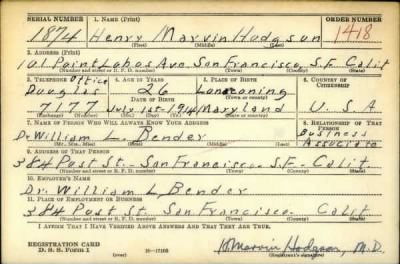 SERIAL NUMBER 1. NAME (Print) ORDER NUMBER
1874 Henry Marvin Hodgson 1418
(First) (Middle) (Last)
2. ADDRESS (Print)
101 Point Lobos Ave. San Francisco, S.F. Calif
(Number and street or R. F. D. number) (Town) (County) (State)
3. TELEPHONE Office 4. AGE IN YEARS 5. PLACE OF BIRTH 6. COUNTRY OF CITIZENSHIP
Douglas 26 Lonaconing
DATE OF BIRTH (Town or county)
7177 July 1st 1914 Maryland U.S.A
(Exchange) (Number) (Mo.) (Day) (Yr.) (State or country)
7. NAME OF PERSON WHO WILL ALWAYS KNOW YOUR ADDRESS 8. RELATIONSHIP OF THAT PERSON
Dr. William L. Bender Business Associate
(Mr., Mrs., Miss) (First) (Middle) (Last)
9. ADDRESS OF THAT PERSON
384 Post St. San Francisco - S.F. - Calif.
(Number and street or R. F. D. number) (Town) (County) (State)
10. EMPLOYER'S NAME
Dr. William L. Bender
11. PLACE OF EMPLOYMENT OR BUSINESS
384 Post St. San Francisco Calif
(Number and street or R. F. D. number) (Town) (County) (State)
I AFFIRM THAT I HAVE VERIFIED ABOVE ANSWERS AND THAT THEY ARE TRUE.
REGISTRATION CARD
D. S. S. Form 1 H Marvin Hodgson, M.D.
(Registrant's signature)